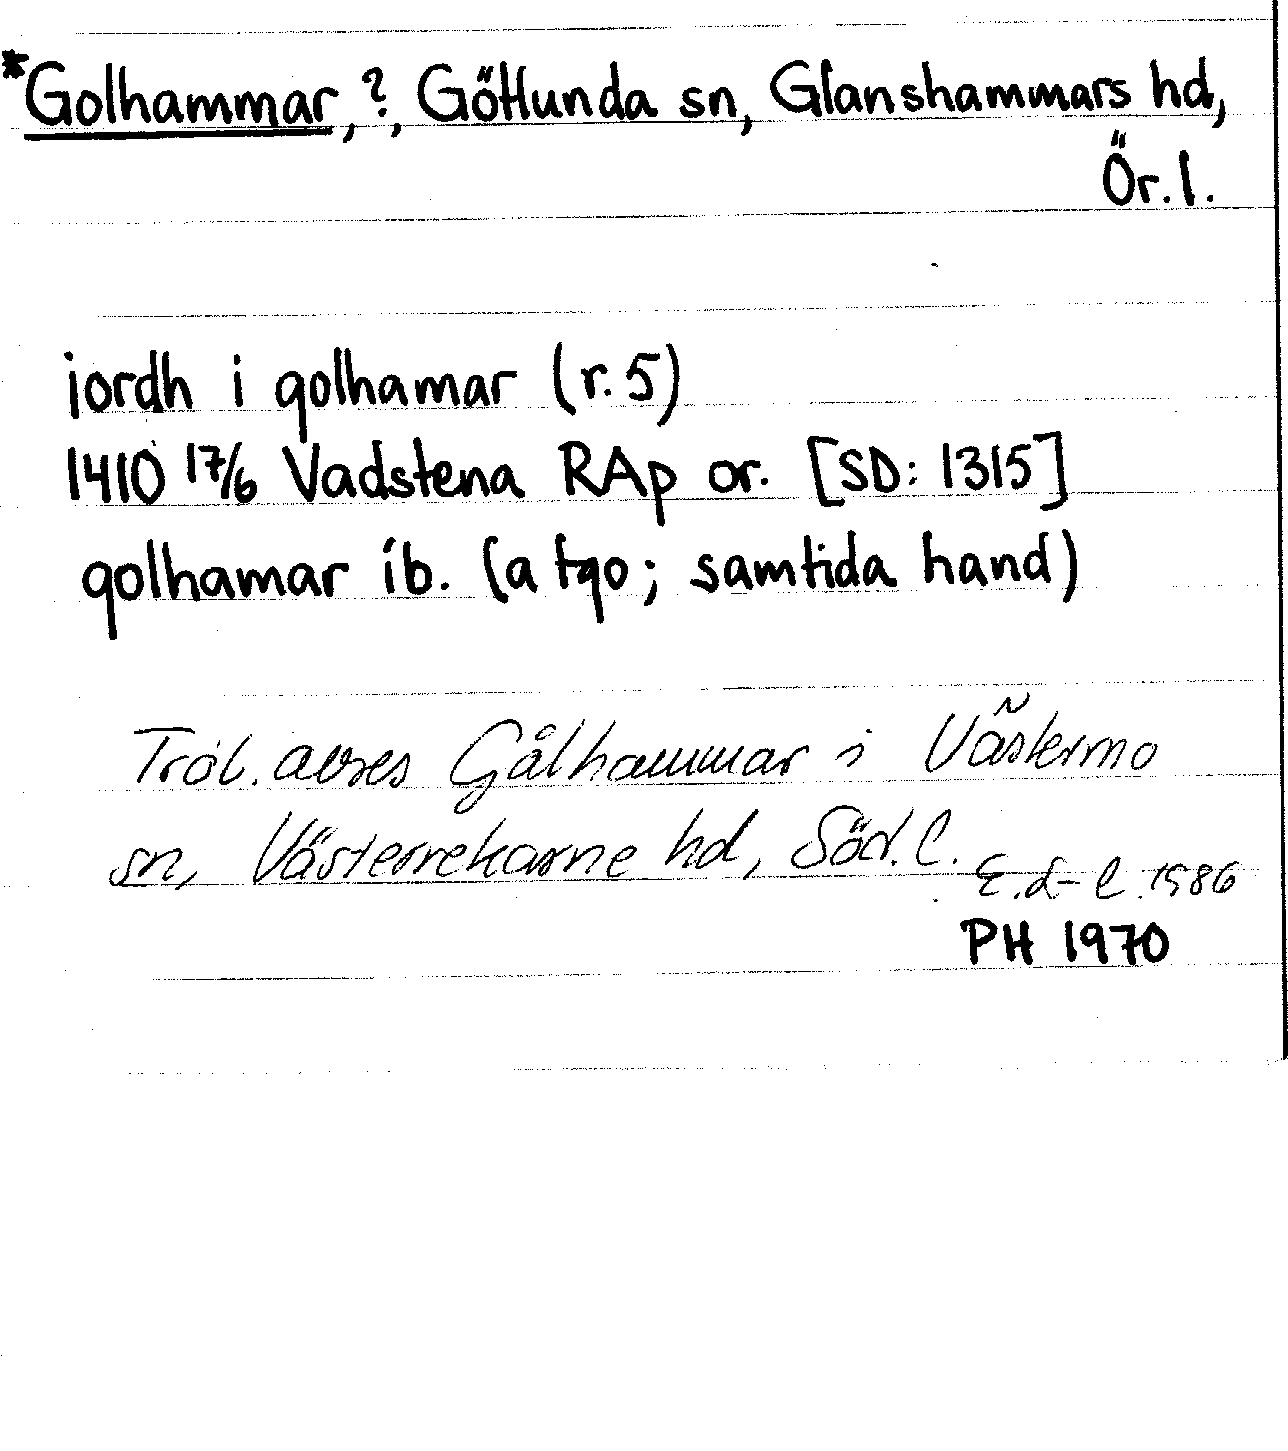 *Golhammar, ?, Götlunda sn, Glanshammars hd,
Ör. l.
iordh i golhamar (r. 5)
1410 17/6 Vadstena RAp or. [SD: 1315]
golhamar ib. (a tgo; samtida hand)
Trol. avses Gålhammar i Västermo
sn, Västerrekarne hd, Söd. l.
E. d-l 1986
PH 1970